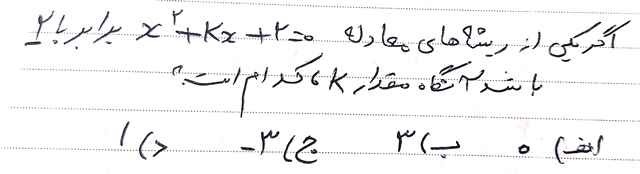 اگر یکی از ریشه‌های معادله x²+kx+۲=۰ برابر با ۲
باشد آنگاه مقدار k، کدام است؟
الف) ۰ ب) ۳ ج) ۳- د) ۱